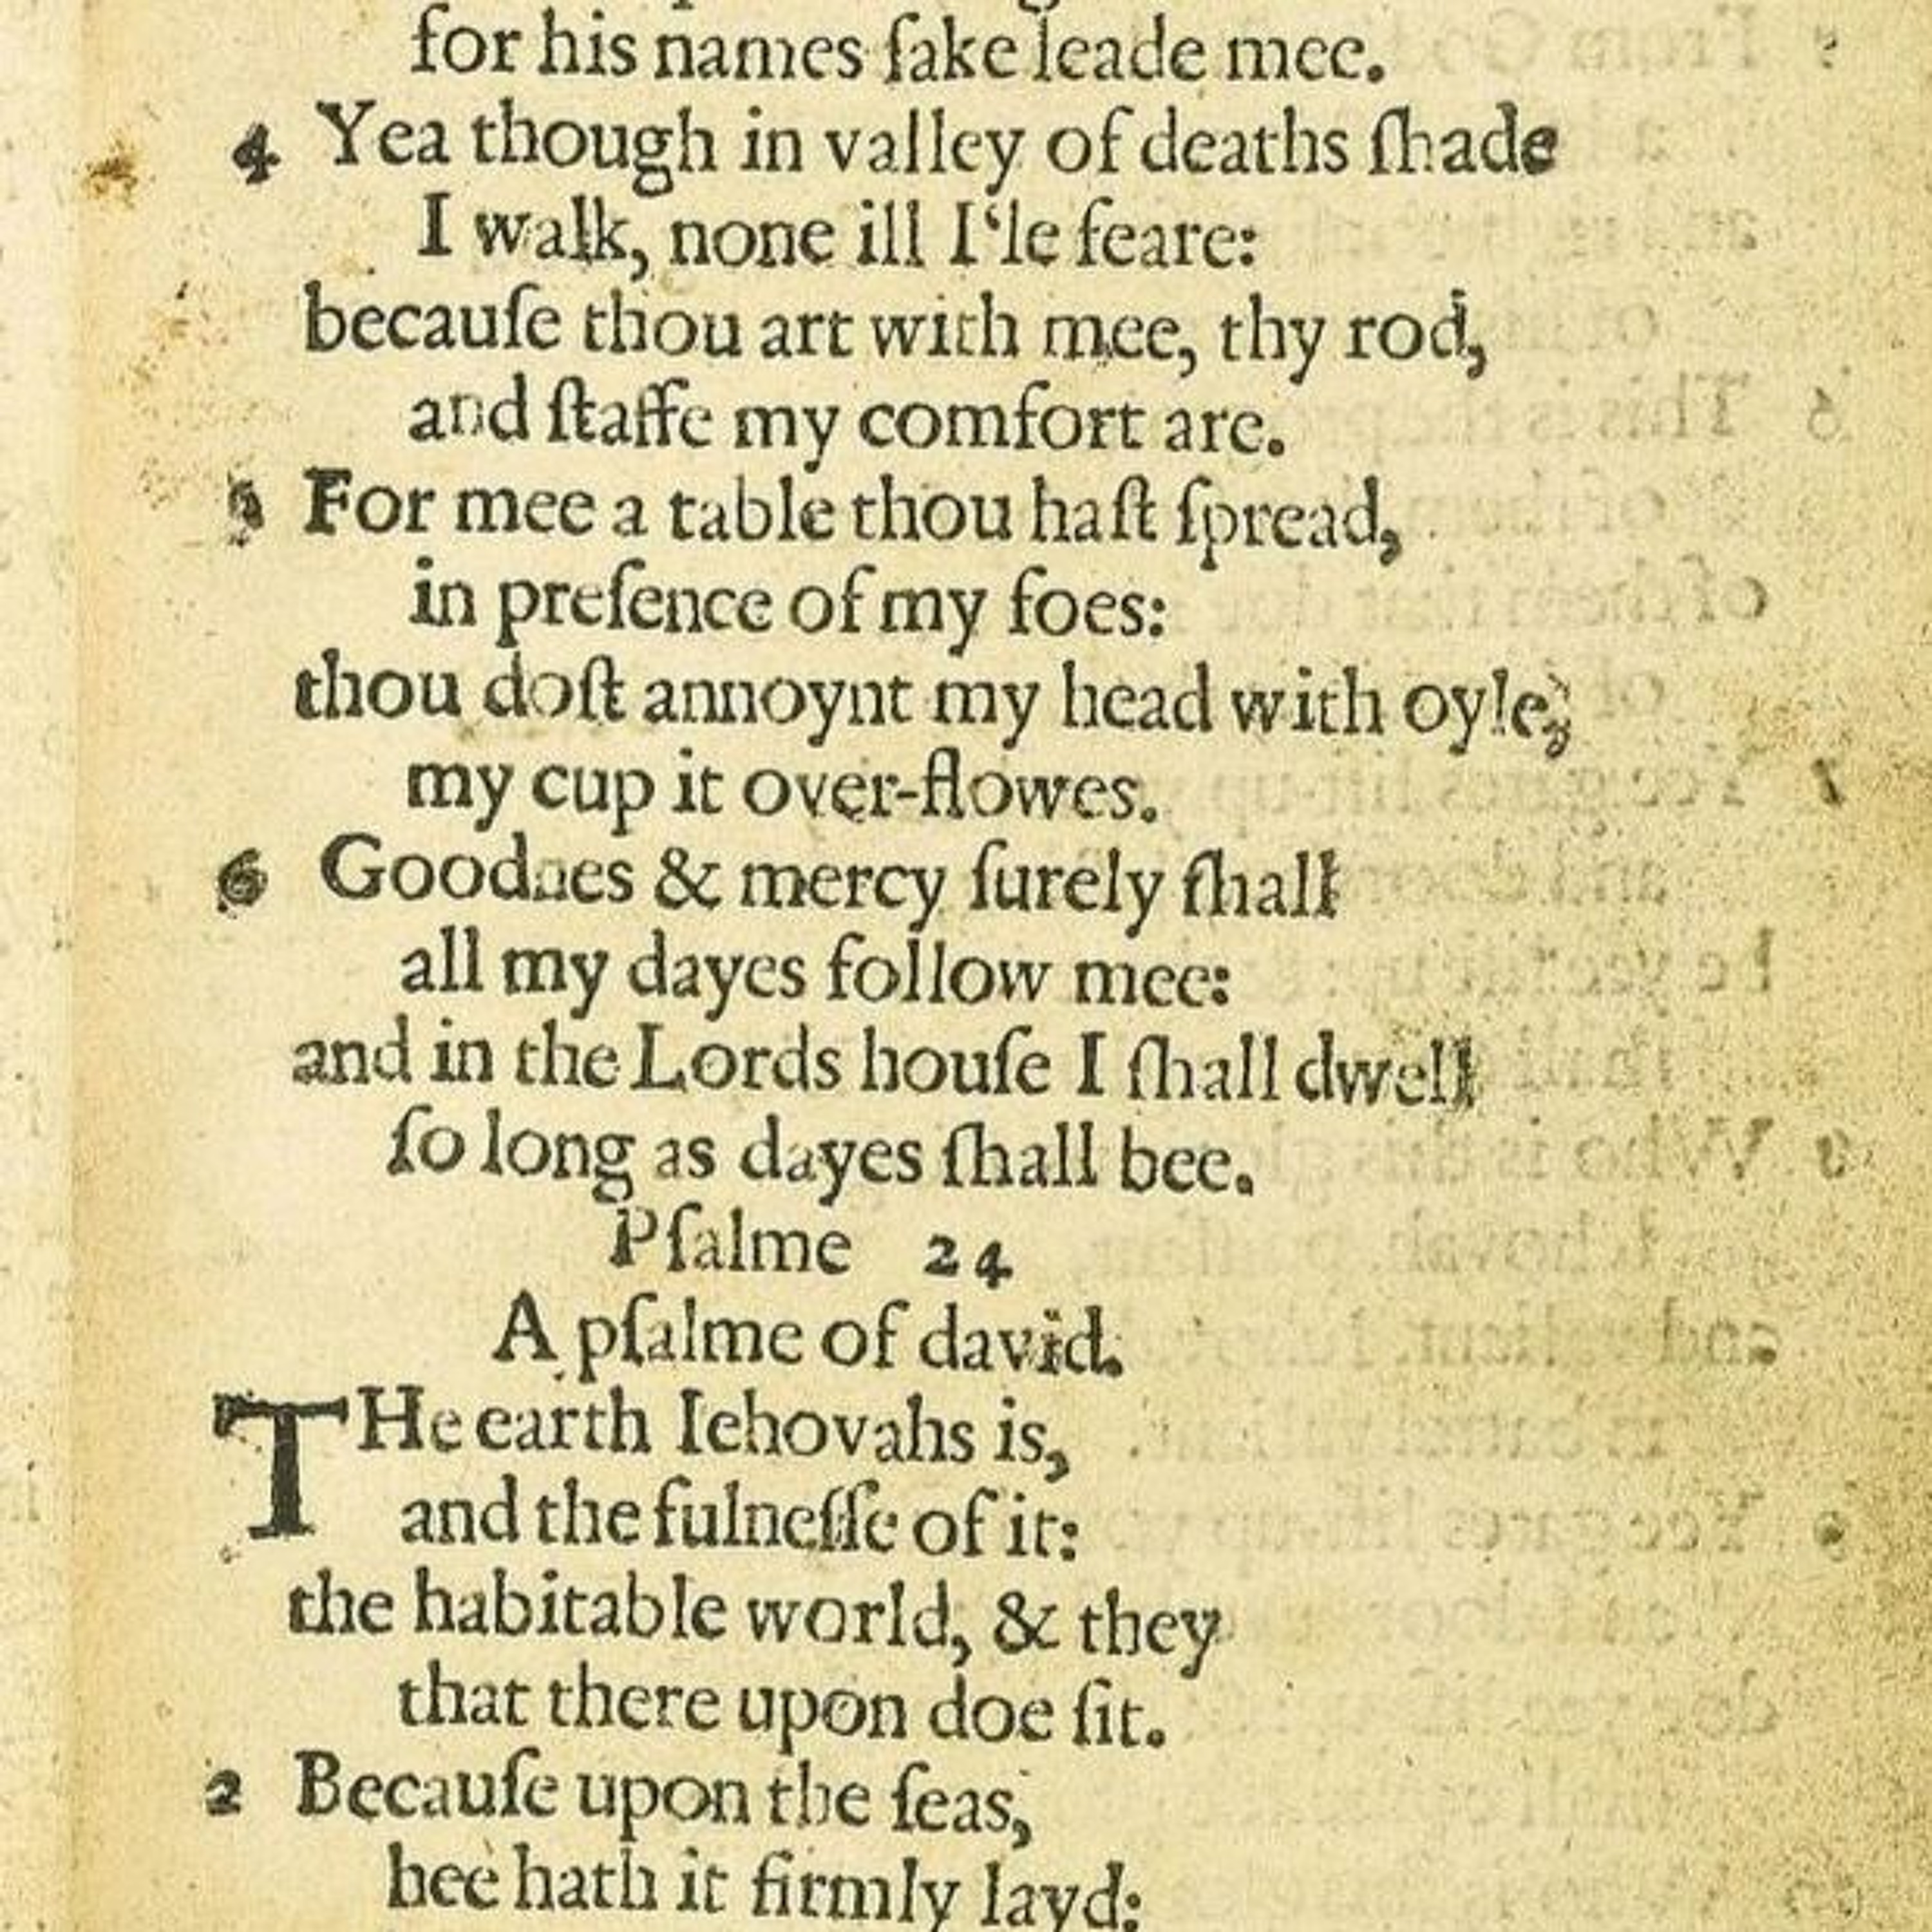 for his names ſake leade mee.
4 Yea though in valley of deaths ſhade
I walk, none ill I‘le feare:
becauſe thou art with mee, thy rod,
and ſtaffe my comfort are.
5 For mee a table thou haſt ſpread,
in preſence of my foes:
thou doſt annoynt my head with oyle,
my cup it over-flowes.
6 Goodnes & mercy ſurely ſhall
all my dayes follow mee:
and in the Lords houſe I ſhall dwell
ſo long as dayes ſhall bee.
Pſalme 24
A pſalme of david.
THe earth Iehovahs is,
and the fulneſſe of it:
the habitable world, & they
that there upon doe ſit.
2 Becauſe upon the ſeas,
hee hath it firmly layd: